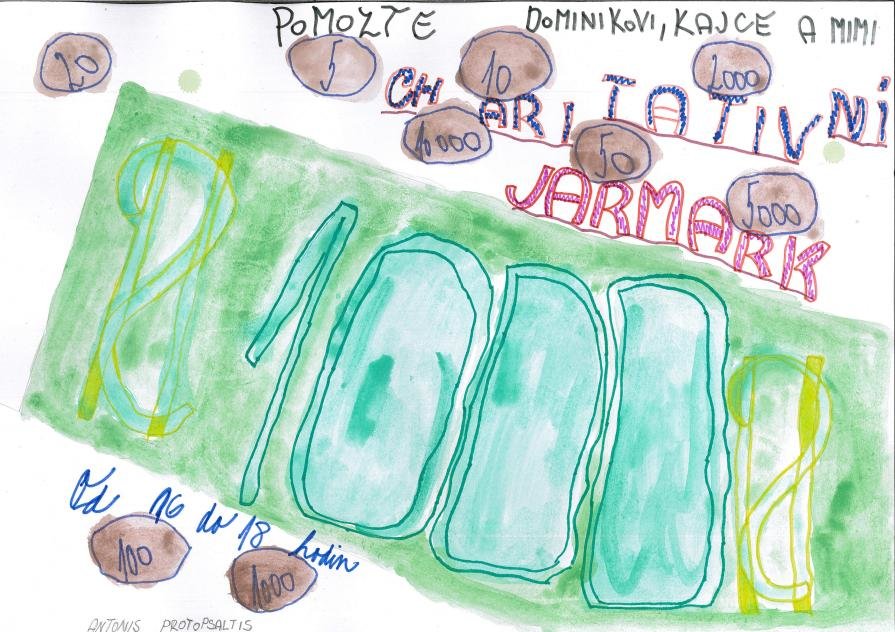 POMOZTE DOMINIKOVI, KAJCE A MIMI
20 5 10 2000
CHARITATIVNÍ
10000 50
JARMARK
5000
1000
Od 16 do 18 hodin
100 1000
ANTONIS PROTOPSALTIS